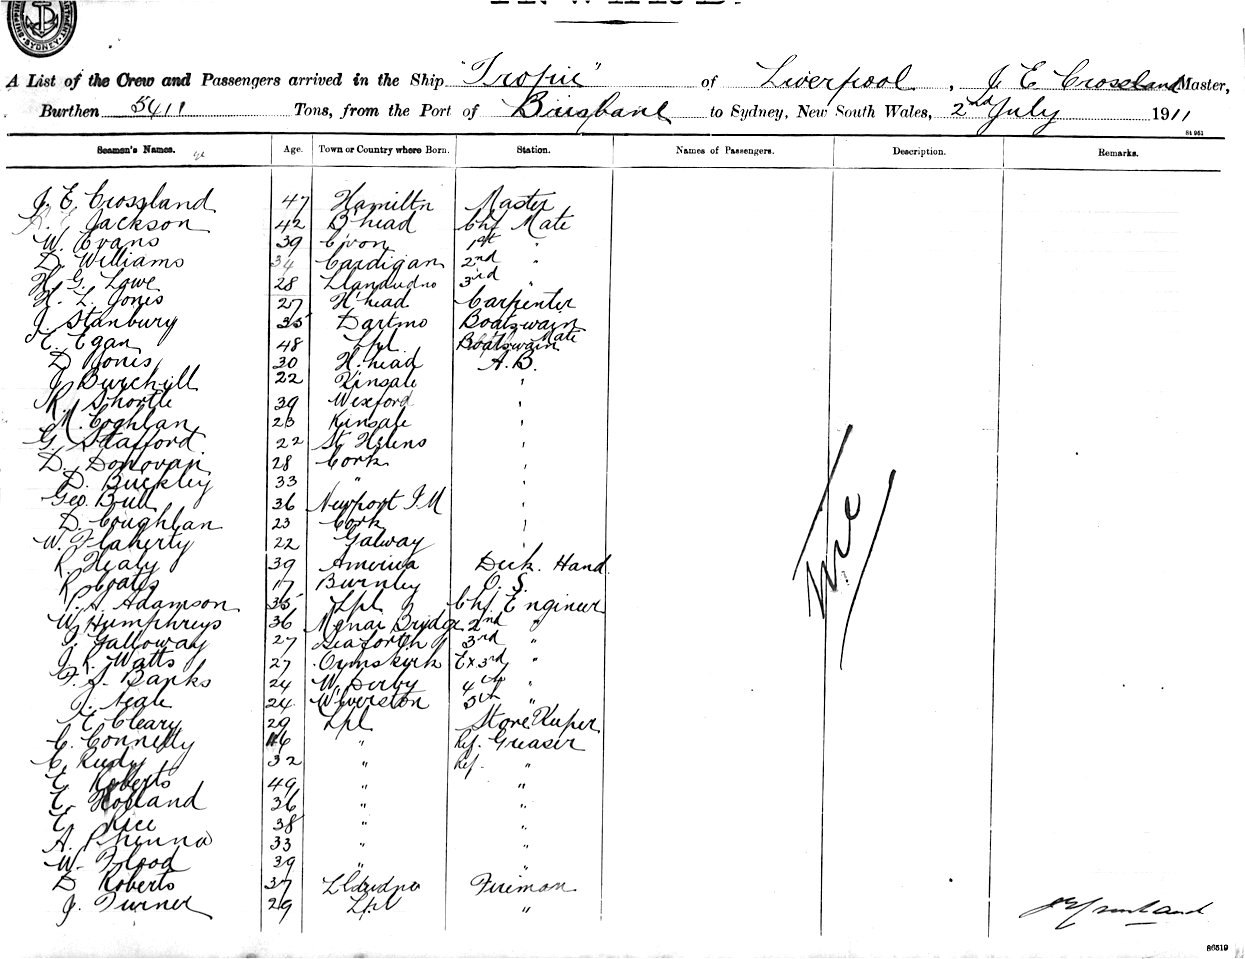 INWARD.
SYDNEY
A List of the Crew and Passengers arrived in the Ship "Tropic" of Liverpool, J. E. Crossland Master,
Burthen 5411 Tons, from the Port of Brisbane to Sydney, New South Wales, 2nd July 1911
St 961
Seamen's Names. Age. Town or Country where Born. Station. Names of Passengers. Description. Remarks.
J. E. Crossland 47 Hamiltn Master
Jackson 42 B'head Chf Mate
W. Evans 39 1st "
D. Williams 34 Cardigan 2nd "
H. G. Lowe 28 Llandudno 3rd "
H. L. Jones 27 H'head Carpenter
J. Stanbury 35 Dartmo Boatswain
E. Egan 48 Lpl Boatswain Mate
D. Jones 30 H.head A.B.
J. Burchill 22 Kinsale "
R. Shortle 39 Wexford "
M. Coghlan 23 Kinsale "
G. Stafford 22 St Helens "
D. Donovan 28 Cork "
D. Buckley 33 " "
Geo. Bull 36 Newport I.M "
D. Coughlan 23 Cork "
W. Flaherty 22 Galway "
R. Healy 39 America Deck. Hand
R. Coates 17 Burnley O. S.
Adamson 35 Lpl Chf Engineer
W. Humphreys 36 Menai Bridge 2nd "
Galloway 27 Seaforth 3rd "
J. R. Watts 27 Ormskirk Ex 3rd "
F. S. Banks 24 W. Derby 4th "
J. Neale 24 Ulverston 5th "
E. Cleary 29 Lpl Store Keeper
C. Connelly 46 " Ref. Greaser
C. Rudy 32 " Ref. "
E. Roberts 49 " "
E. Holland 36 " "
E. Rice 38 " "
A. 33 " "
W. Flood 39 " "
D. Roberts 37 Lldudno Fireman
J. Turner 29 Lpl "
J E Crossland
86519